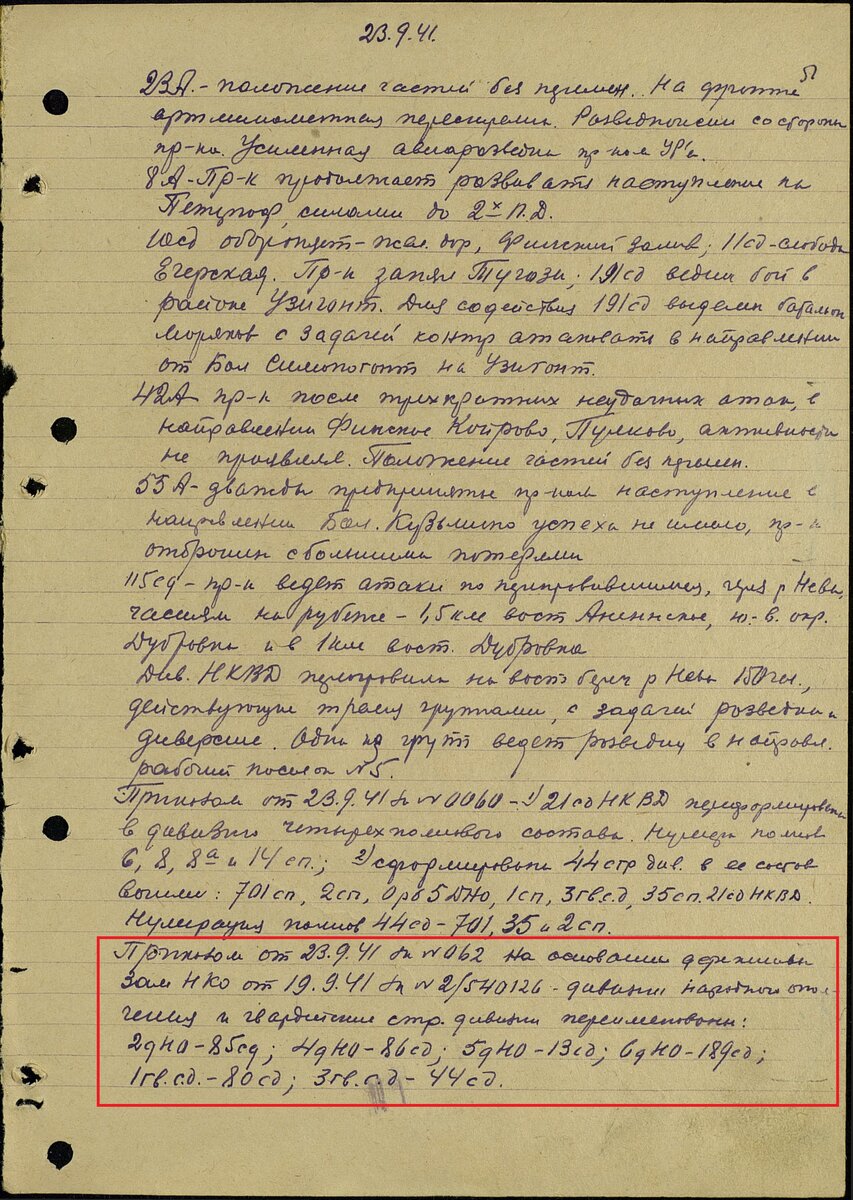 23.9.41.
51
23А.- положение частей без перемен. На фронте
артминометная перестрелка. Разведпоиски со стороны
пр-ка. Усиленная авиаразведка пр-ком УР'а.
8А-Пр-к продолжает развивать наступление на
Петергоф, силами до 2х П.Д.
10сд обороняет-жел. дор, Финский залив; 11сд-слобода
Егерская. Пр-к занял Тугози; 191сд ведет бой в
районе Узигонт. Для содействия 191сд выделен батальон
моряков с задачей контр атаковать в направлении
от Бол Симпогонт на Узигонт.
42А пр-к после трехкратных неудачных атак, в
направлении Финское Койрово, Пулково, активности
не проявлял. Положение частей без перемен.
55А- дважды предпринятые пр-ком наступление в
направлении Бол. Кузьмино успеха не имело, пр-к
отброшен с большими потерями
115сд - пр-к ведет атаки по переправившимся, через р Нева,
частям на рубеже - 1,5км вост Аненнское, ю.-в. окр.
Дубровка и в 1км вост. Дубровка
Див. НКВД переправила на вост берег р Нева 150чел.,
действующие тремя группами, с задачей разведки и
диверсие. Одна из групп ведет разведку в направл.
рабочий поселок №5.
Приказом от 23.9.41 за №0060 - 1) 21сд НКВД переформирована
в дивизию четырехполкового состава. Номера полков
6, 8, 8а и 14 сп.; 2) сформирована 44стр див. в ее состав
вошли: 701сп, 2сп, 5ДНО, 1сп, 3гв.сд, 35сп. 21сд НКВД.
Нумерация полков 44сд - 701, 35 и 2сп.
Приказом от 23.9.41 за №062 на основании директивы
зам НКО от 19.9.41 за №2/540126 - дивизии народного опол-
чения и гвардейские стр. дивизии переименованы:
2дНО-85сд; 4дНО-86сд; 5дНО-13сд; 6дНО-189сд;
1гв.сд.-80сд; 3гв.с.д-44сд.